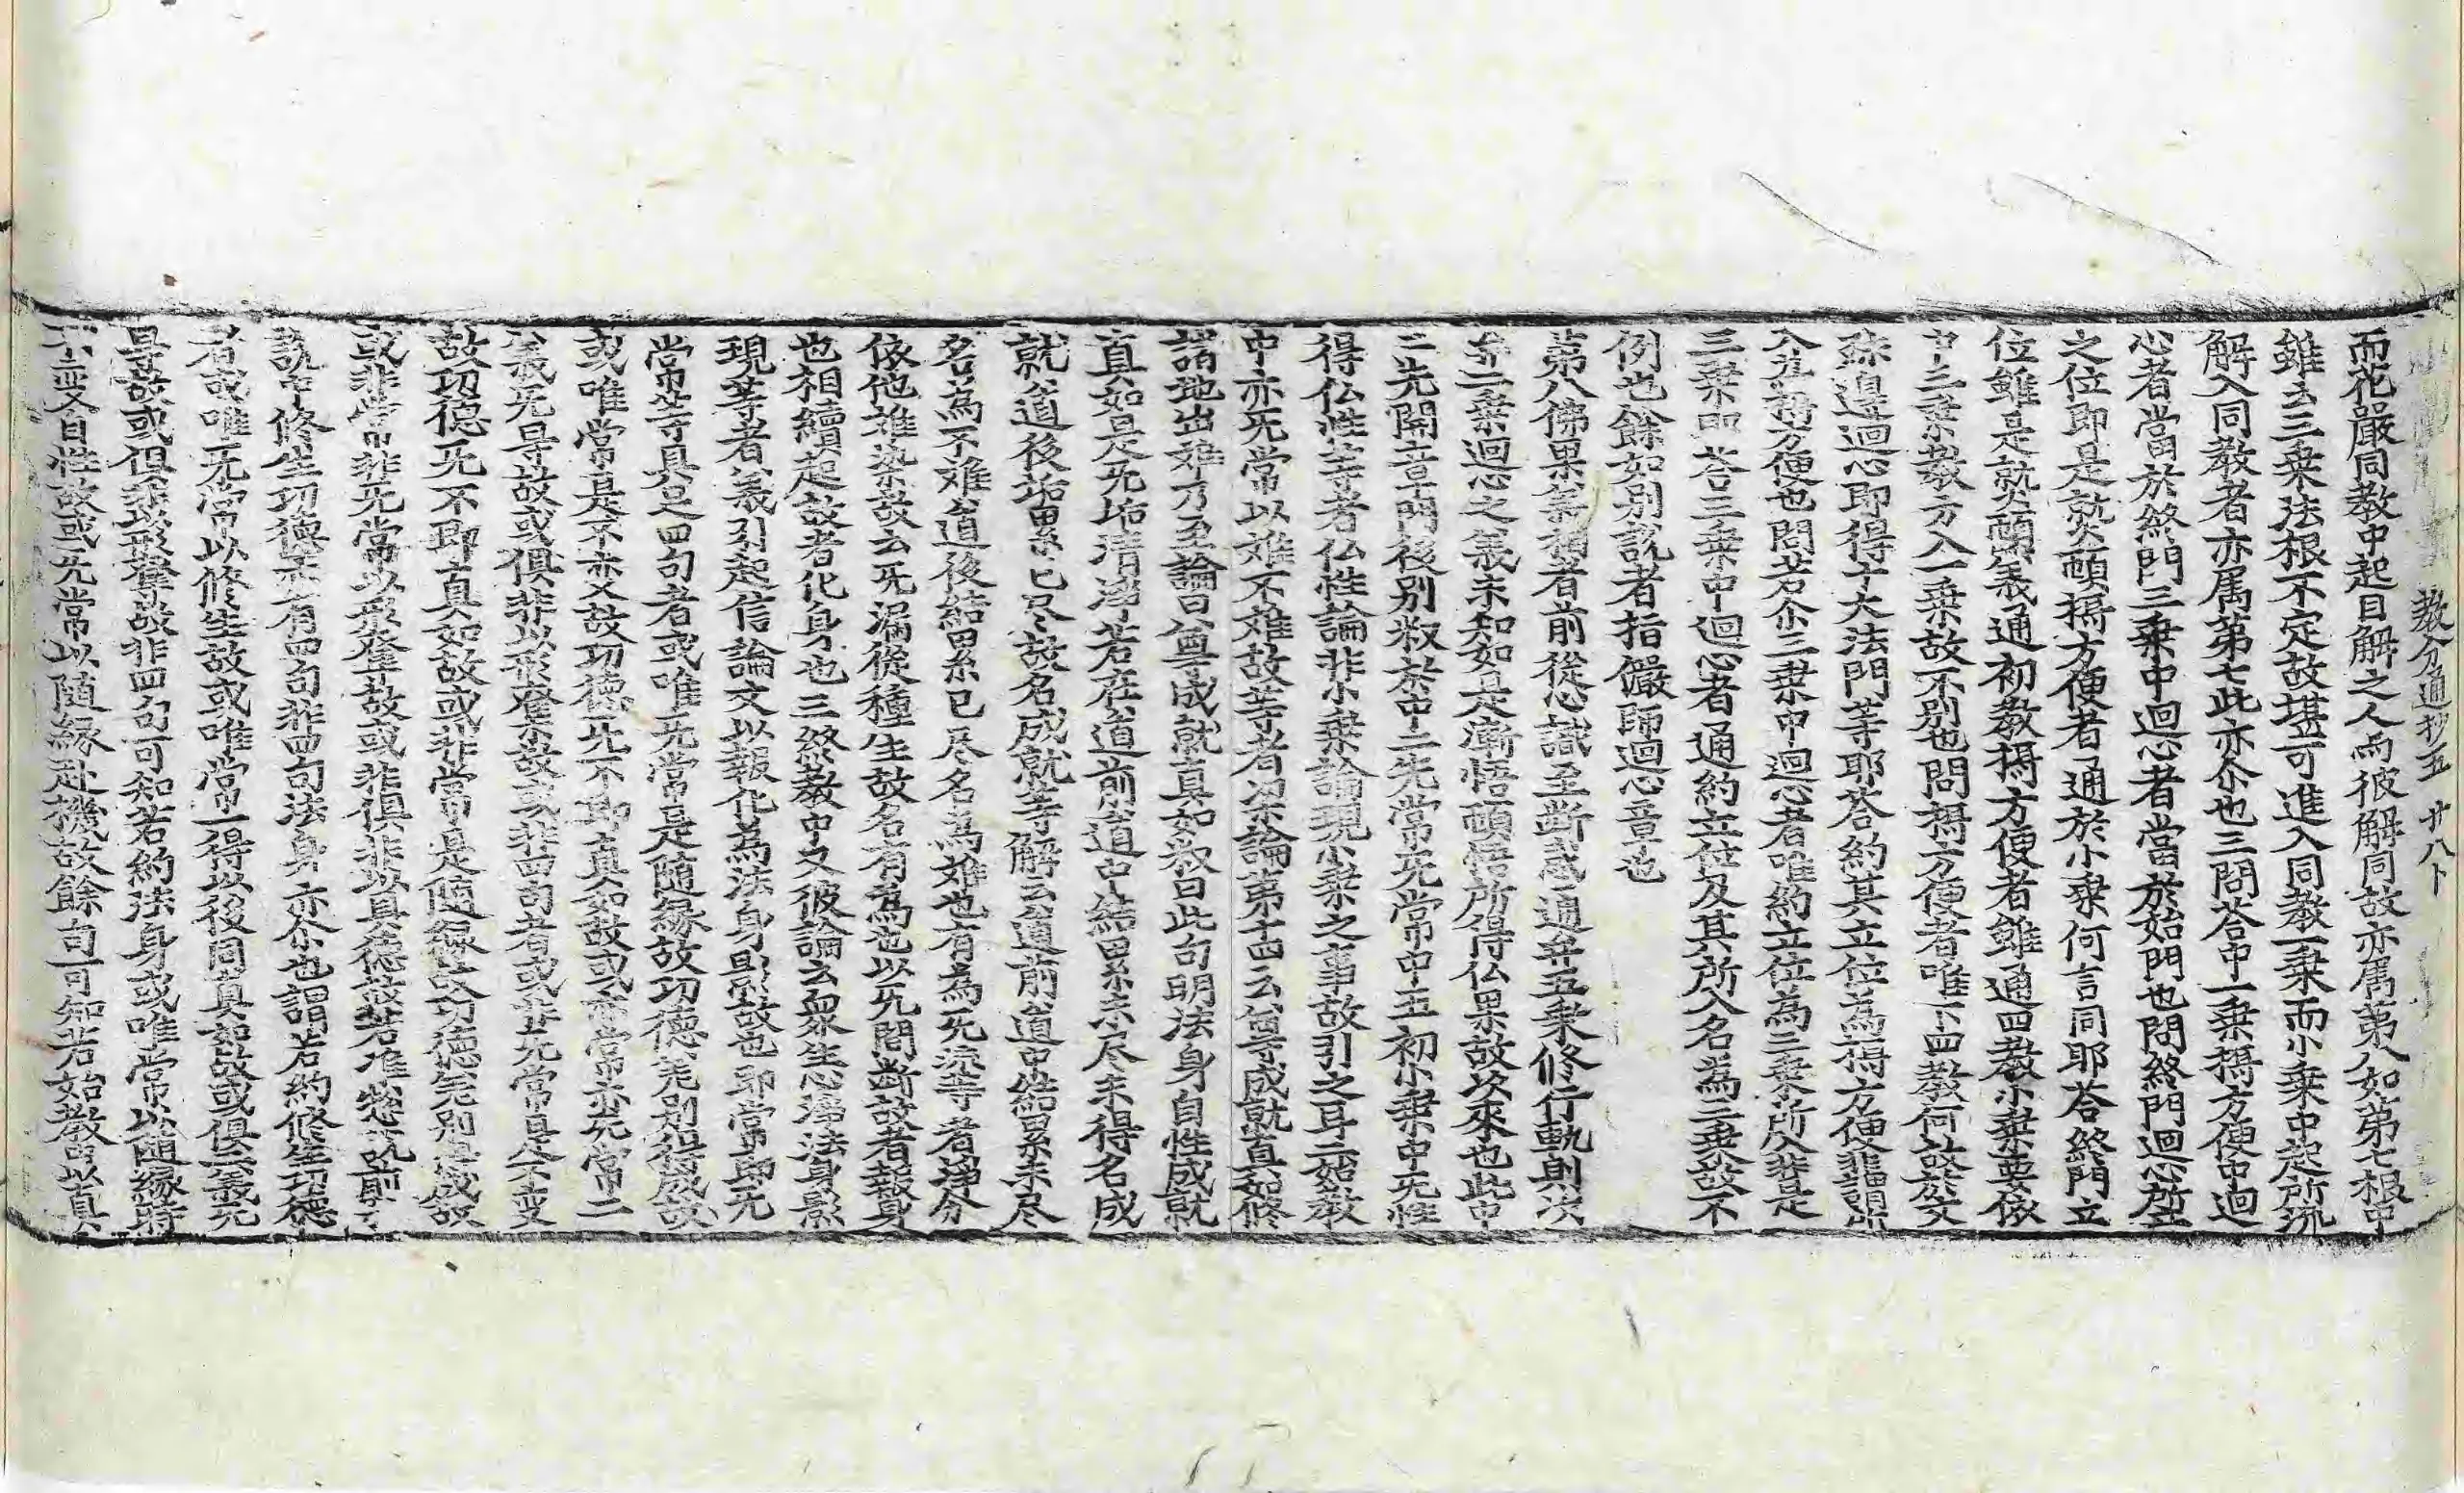 教分通抄五 廿八下
而花嚴同教中起目解之人爲彼解同故亦属第八如第七根中
雖云三乗法根不定故堪可進入同教一乗而小乗中起所流
解入同教者亦属第七此亦尒也三問荅中一乗揭方便中迴
心者當於終門三乗中迴心者當於始門也問終門迴心所立
之位即是就頓揭方便者通於小乗何言同耶荅終門立
位雖是就頓義通初教揭方便者雖通四教小乗要依
中三乗教方入一乗故不別也問揭方便者唯下四教何故於文
殊邊迴心即得十大法門等耶荅約其立位為揭方便非謂
入揭方便也問若尒三乗中迴心者唯約立位為三乗所入非是
三乗耶荅三乗中迴心者通約立位及其所入名為三乗故不
例也餘如別說者指儼師迴心章也
第八佛果義相者前從心識至断惑通弁五乗修行軌則次
弁二乗迴心之義未知如是漸悟頓悟所得仏果故次来也此中
三先開章門後別釈於中二先常无常中五初小乗中无性
得仏性等者仏性論非小乗論現小乗之事故引之耳二始教
中亦无常以離不離故等者梁論第十四云尊成就真如修
諸地出離方至論曰尊成就真如釈曰此句明法身自性成就
真如是无垢清淨若在道前道中結累未尽未得名成
就道後垢累已尽故名成就等解云道前道中結累未尽
名為不離道後結累已尽名為離也有為无流等者淨分
依他離染故云无漏從種生故名有為也以无間断故者報身
也相續起故者化身也三終教中又彼論云衆生心淨法身影
現等者義引起信論文以報化為法身影故也耶常即无
常等具足四句者或唯无常是随縁故功德差別得成故
或唯常是不亦文故功德无不即真如故或亦常亦无常二
義无导故或俱非以形奪故或非四句者或非无常是不变
故功德无不即真如故或非常是随縁故功德差別得成故
或非常非无常以形奪故或非俱非以具德故若准
説中修生功德亦有四句非四句法身亦尒也謂若約修生功德
者或唯无常以修生故或唯常一得以後同真如故或俱二義无
导故或俱非以形奪故非四句可知若約法身或唯常以随縁時
不变自性故或无常以随縁赴機故餘句可知若始教中以真